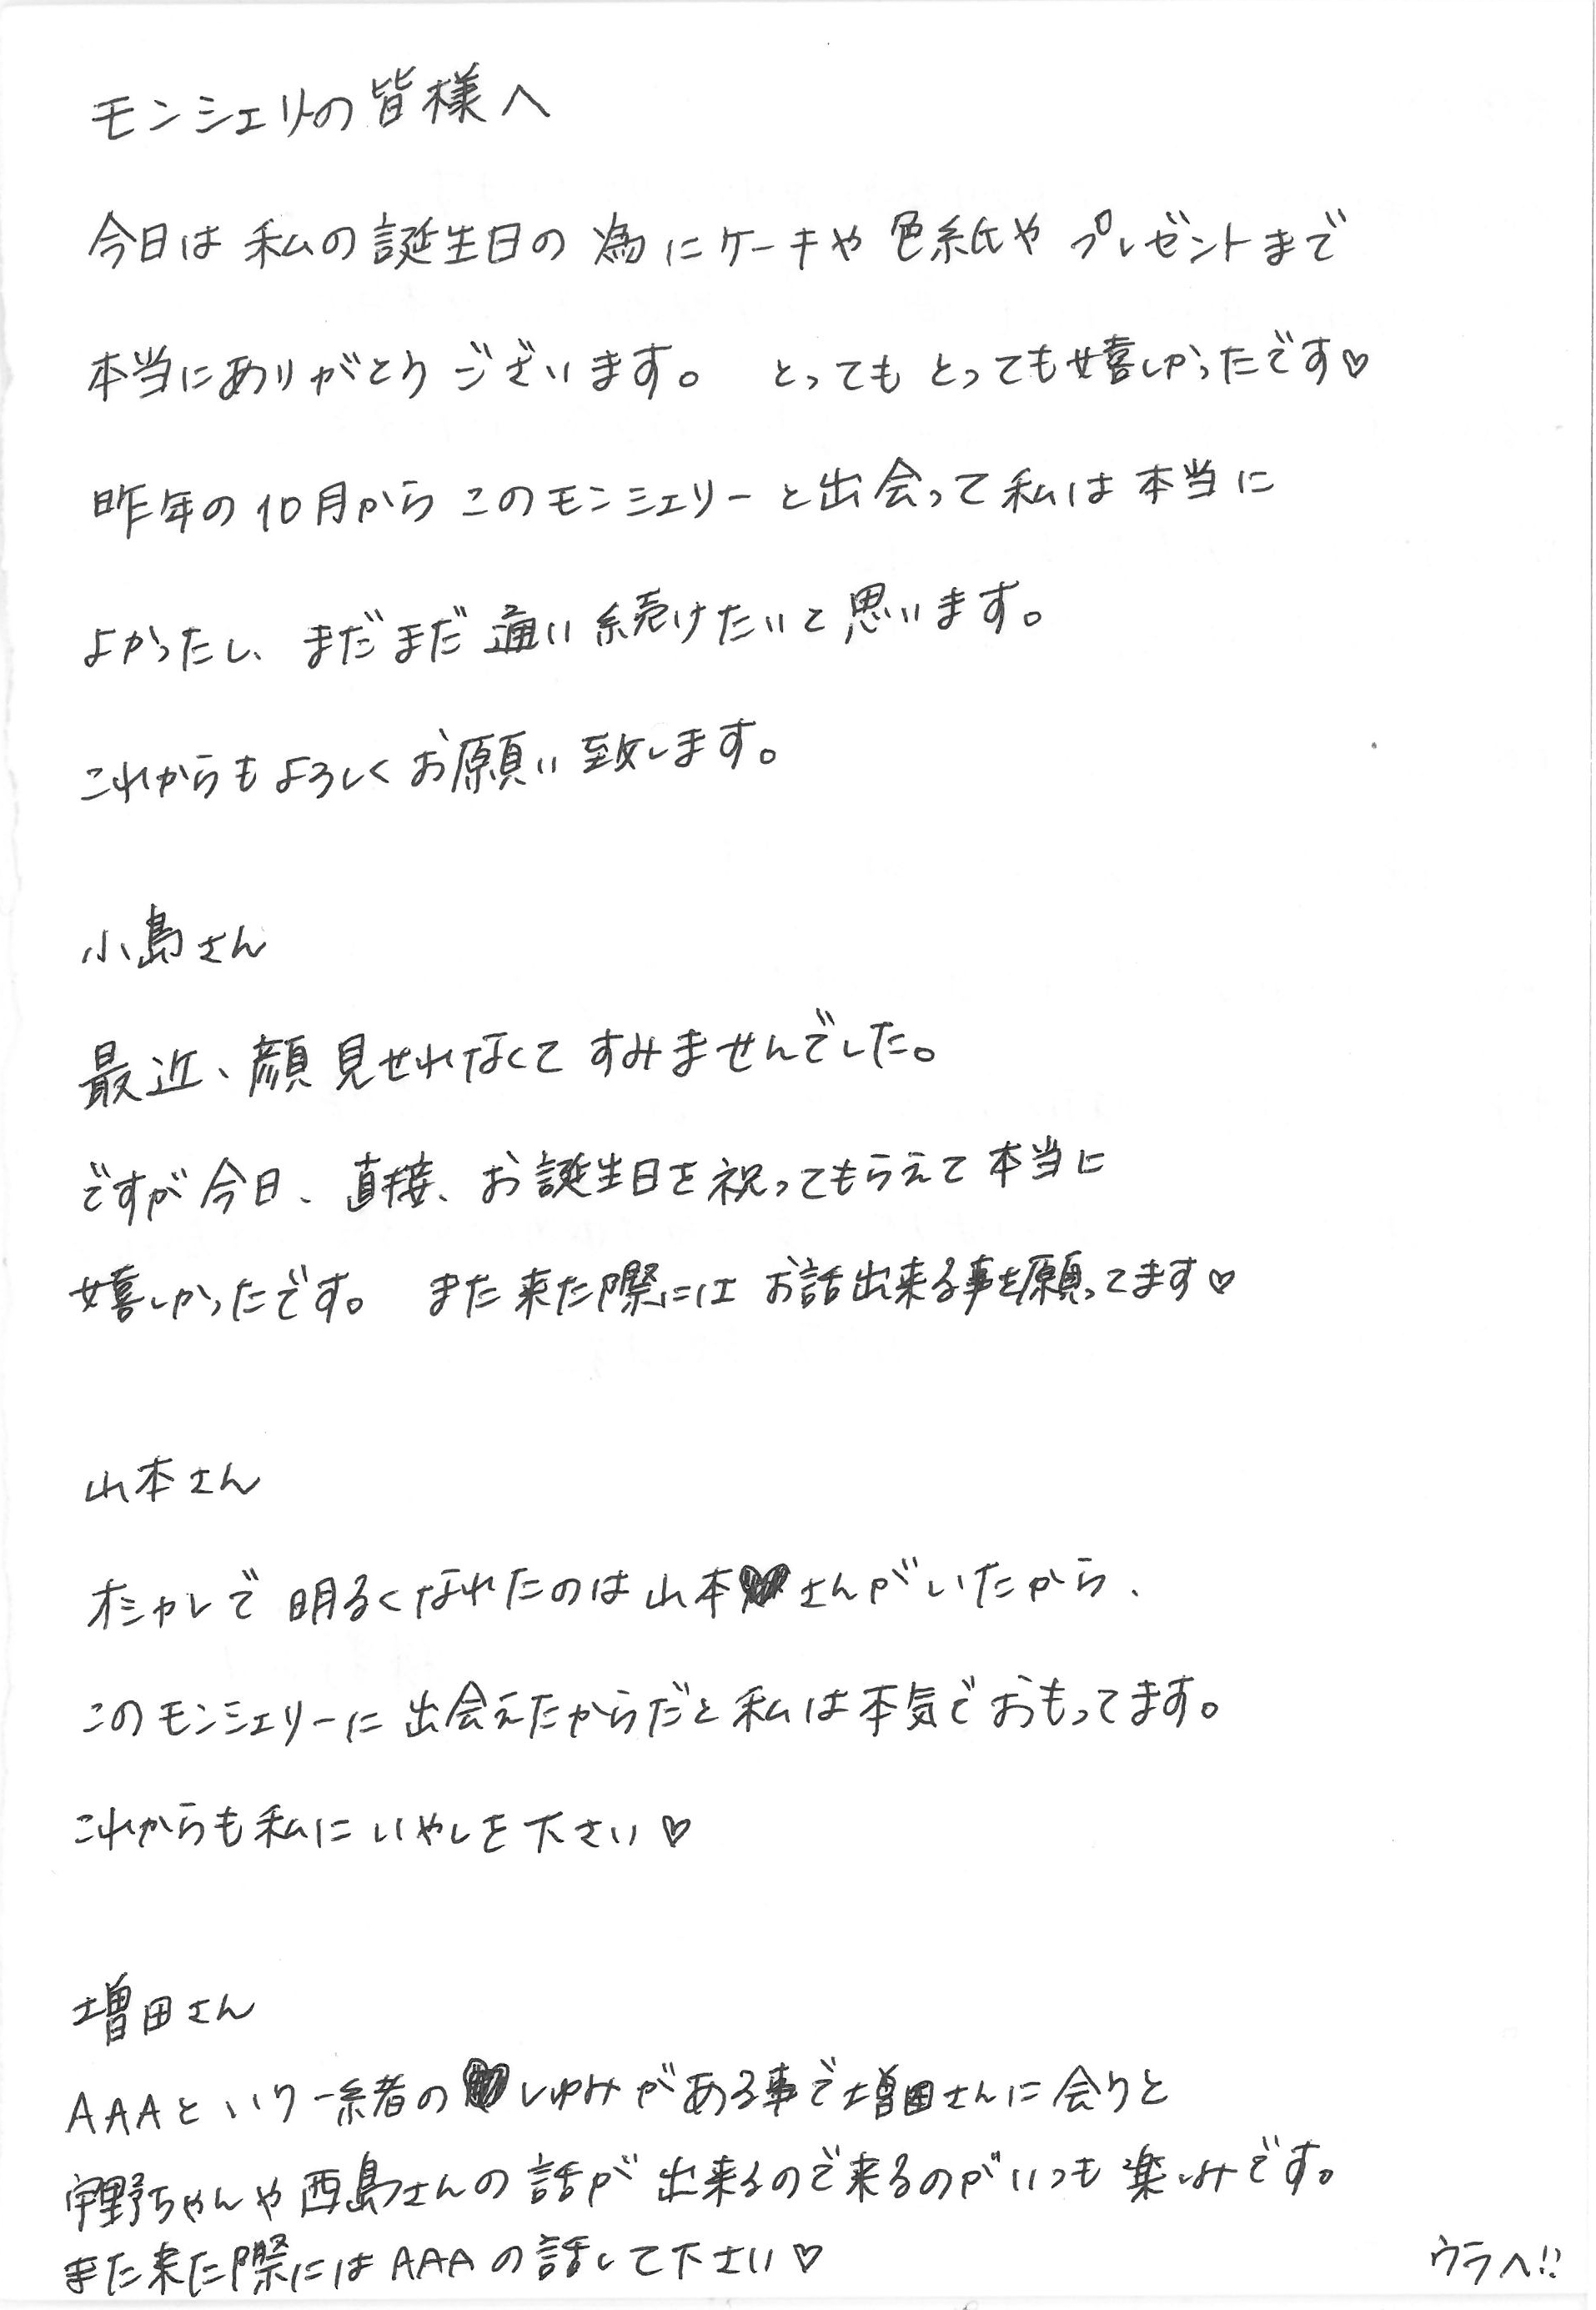 モンシェリーの皆様へ
今日は私の誕生日の為にケーキや色紙やプレゼントまで
本当にありがとうございます。 とってもとっても嬉しかったです♡
昨年の10月からこのモンシェリーと出会って私は本当に
よかったし、まだまだ通い続けたいと思います。
これからもよろしくお願い致します。
小島さん
最近、顔見せれなくてすみませんでした。
ですが今日、直接、お誕生日を祝ってもらえて本当に
嬉しかったです。 また来た際にはお話出来る事を願ってます♡
山本さん
オシャレで明るくなれたのは山本さんがいたから、
このモンシェリーに出会えたからだと私は本気でおもってます。
これからも私にいやしを下さい♡
増田さん
AAAという一緒者のしゅみがある事で増田さんに会うと
宇野ちゃんや西島さんの話が出来るので来るのがいつも楽しみです。
また来た際にはAAAの話して下さい♡
ウラへ!!